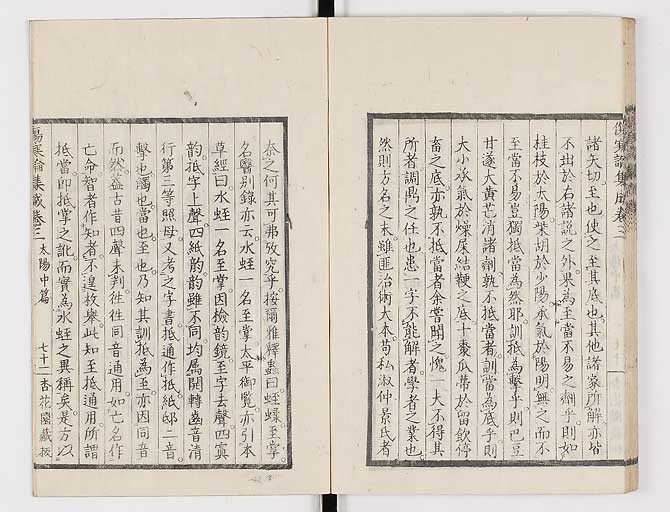 諸矢切至也使之至其底也其他諸家所解亦皆
不出於右諸説之外果為至當不易之劑乎則如
桂枝於太陽柴胡於少陽承氣於陽明無之而不
至當不易豈獨抵當為然耶訓抵為擊乎則巴豆
甘遂大黄亡消諸劑孰不抵當者訓當為底乎則
大小承氣於燥屎結鞕之底十棗瓜蒂於留飲停
畜之底亦孰不抵當者余嘗聞之愧一大不得其
所者調鼎之任也患一字不能解者學者之業也
然則方名之末雖匪治術大本苟私淑仲景氏者
傷寒論集成卷三
奈之何其可弗攷究乎按爾雅釋蟲曰蛭蝚至掌
名醫别録亦云水蛭一名至掌太平御覧亦引本
草經曰水蛭一名至掌因檢韵鏡至字去聲四寘
韵抵字上聲四紙韵韵雖不同均属開轉齒音清
行第三等照母又考之字書抵通作抵紙邸二音
擊也觸也當也至也乃知其訓抵為至亦因同音
而然盖古昔四聲未判徃徃同音通用如亡名作
亡命智者作知者不遑枚舉此知至抵通用所謂
抵當即抵掌之訛而實為水蛭之異稱矣是方以
傷寒論集成卷三 太陽中篇 七十二 杏花園蔵板